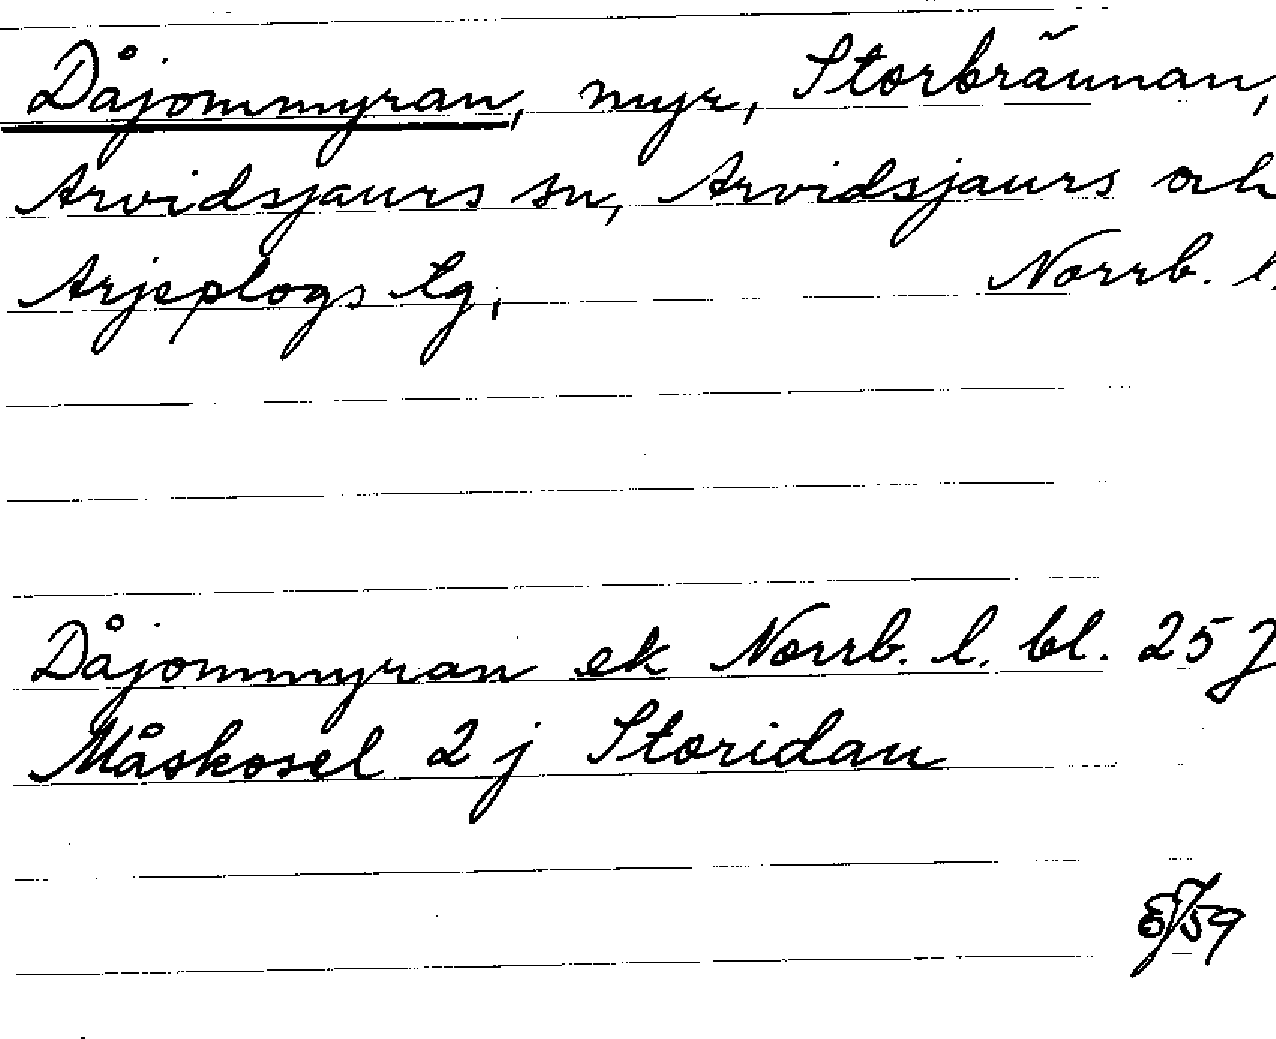 Dåjommyran, myr, Storbrännan,
Arvidsjaurs sn, Arvidsjaurs och
Arjeplogs tg, Norrb. l.
Dåjommyran ek Norrb. l. bl. 25 J
Måskosel 2 j Storidan